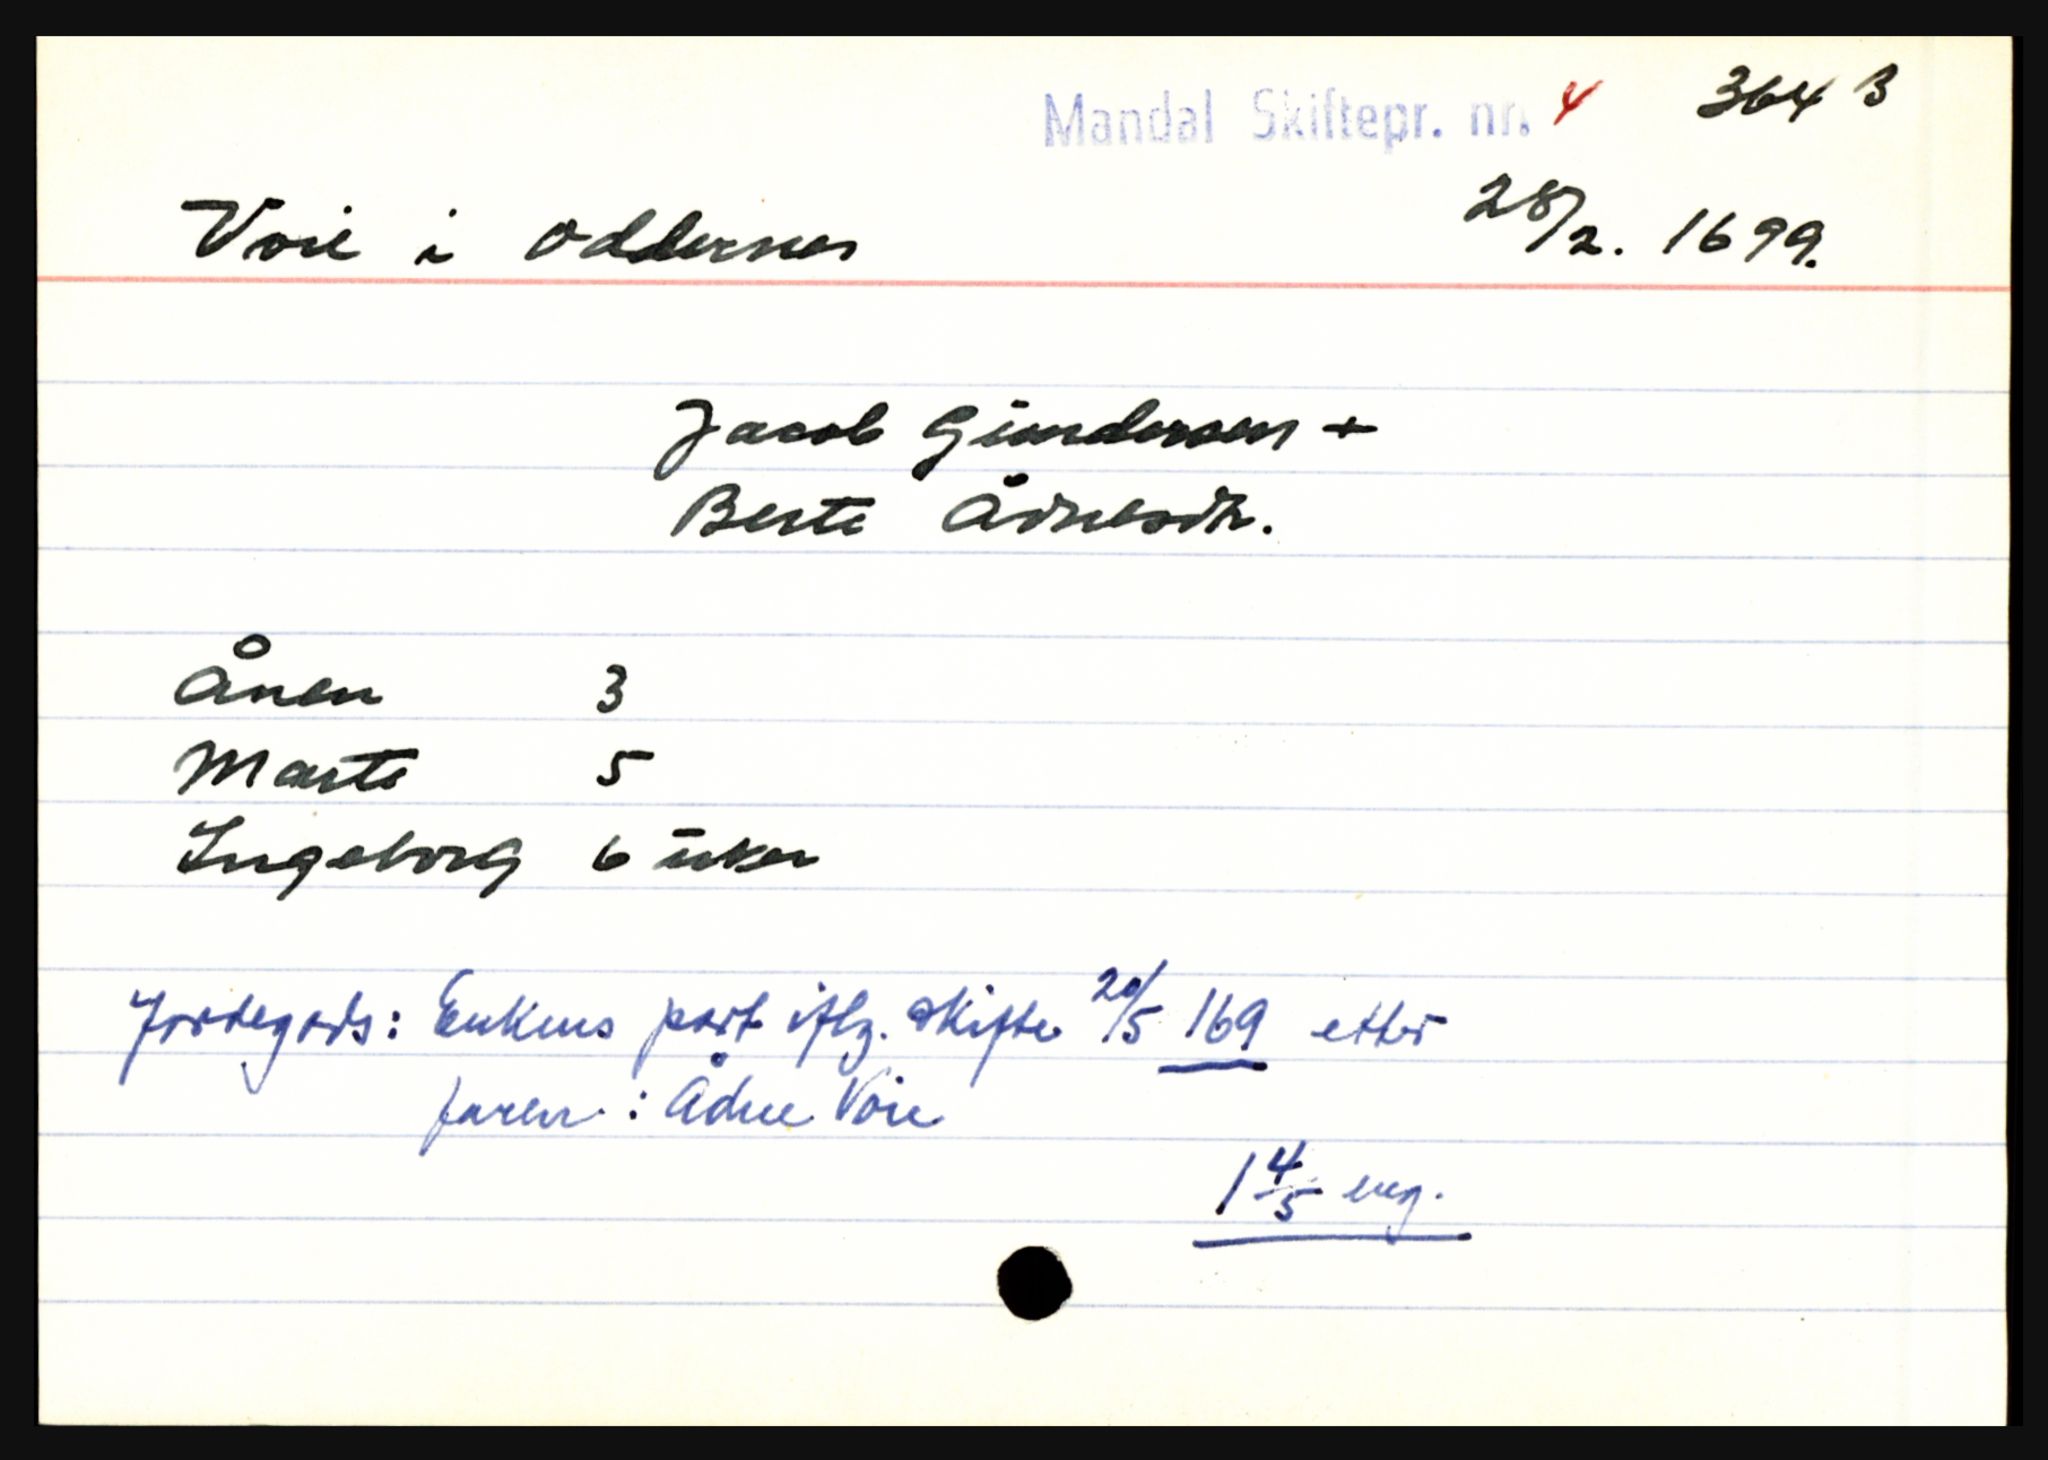 Mandal Skiftepr. nr. 4 364 B
Voie i Oddernes 28/2. 1699.
Jacob Gundersen +
Berte Ådnesdtr.
Ånen 3
Marte 5
Ingeborg 6 uker
Jordegods: Enkens part iflg. skifte 20/5 169 etter
faren : Ådne Voie
1 4/5 eng.